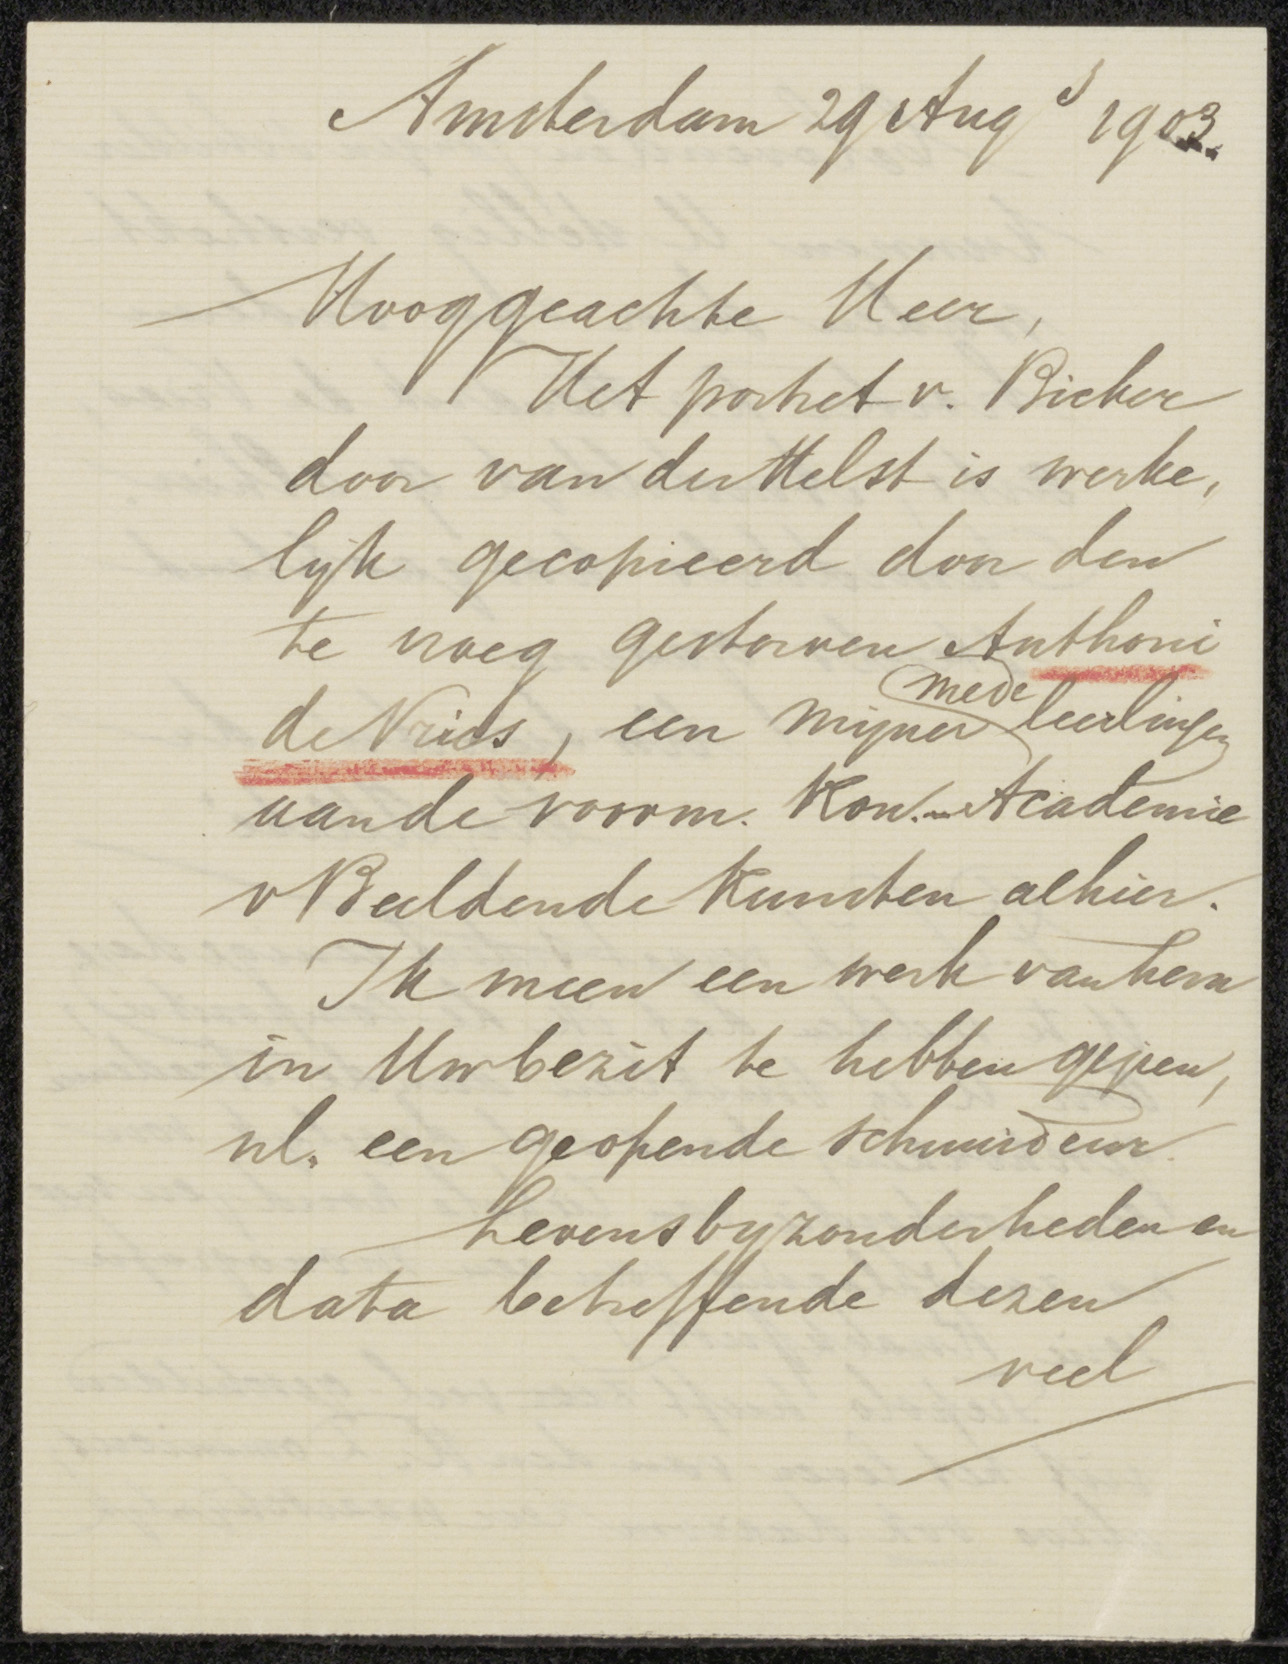 Amsterdam 29 Aug s 1903.
Hooggeachte Heer,
Het portret v. Bicker
door van der Helst is werke„
lijk gecopieerd door den
te vroeg gestorven Anthoni
de Vries, een mijner mede leerlingen
aan de voorm. Kon. Academie
v Beeldende Kunsten alhier.
Ik meen een werk van hem
in Uw bezit te hebben gezien,
nl. een geopende schuurdeur.
Levensbyzonderheden en
data betreffende dezen
veel